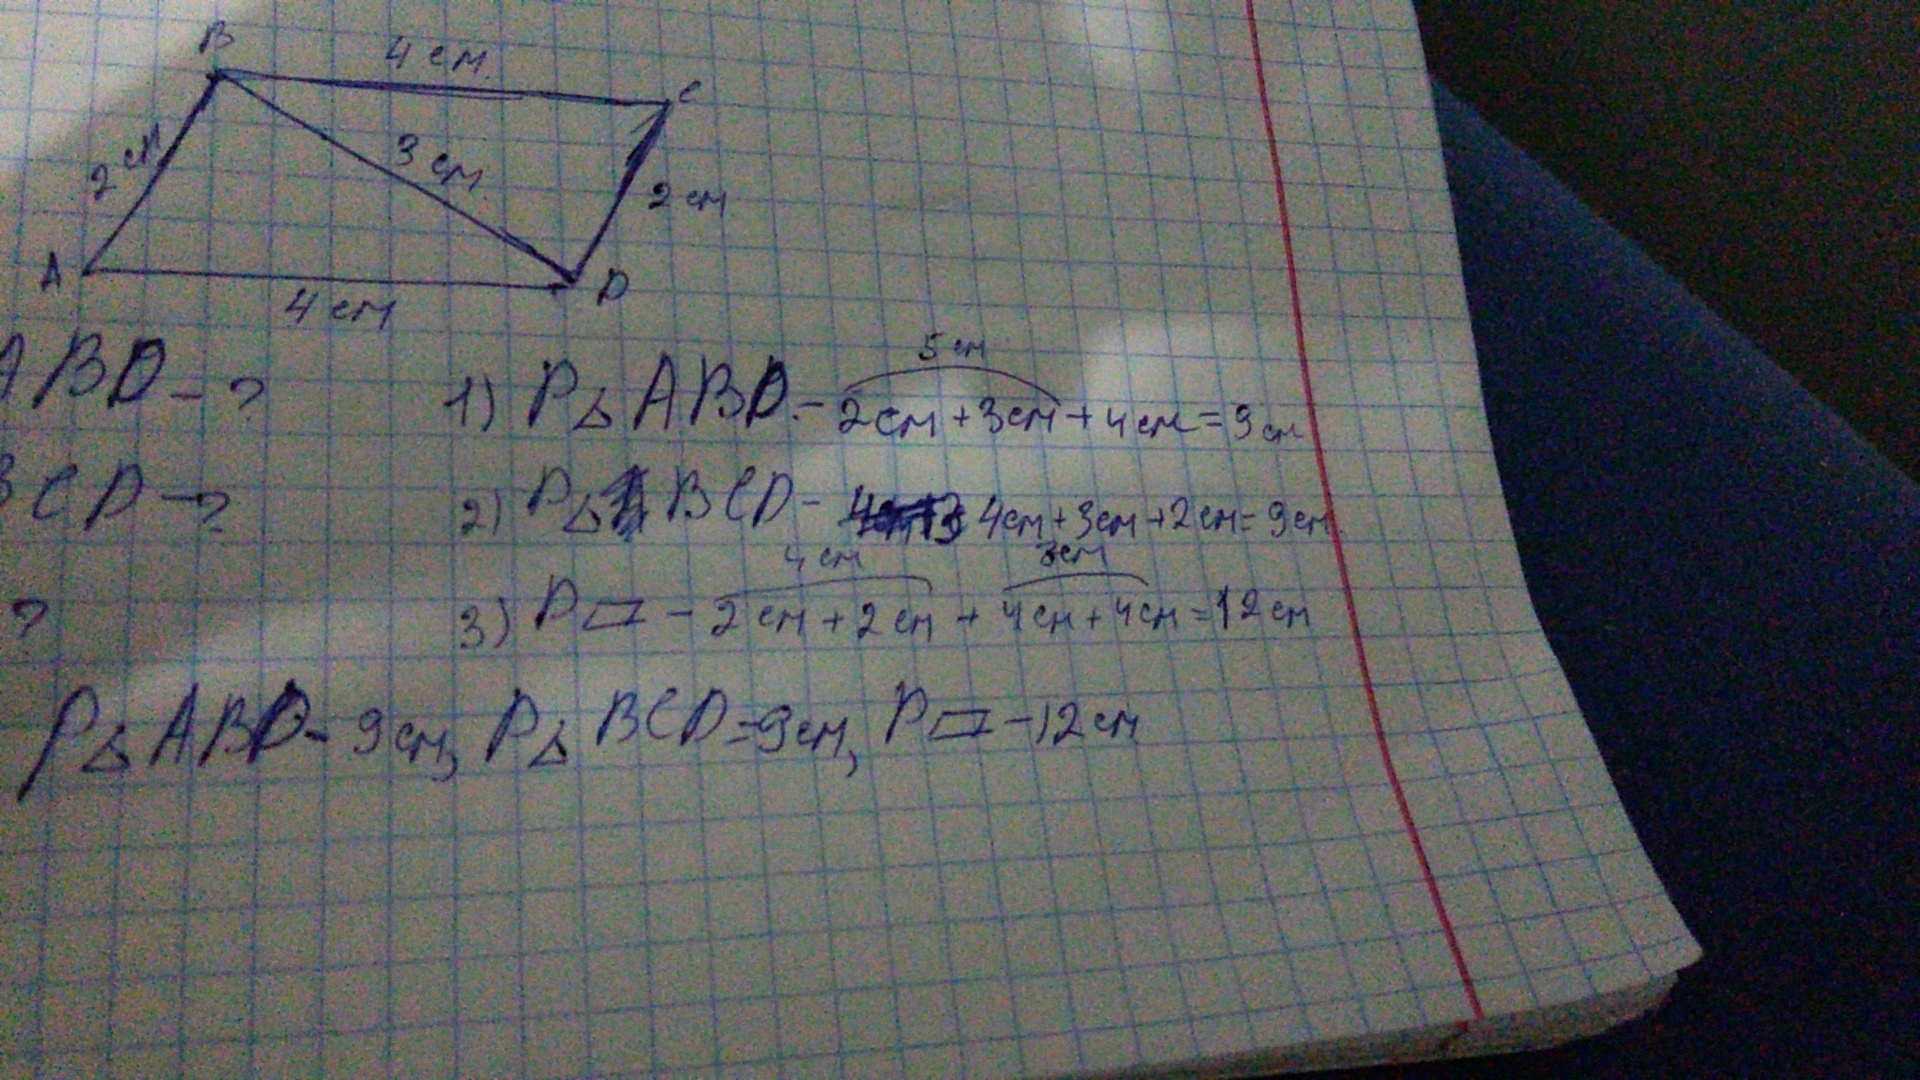 B
4 см
C
2 см
3 см
2 см
A
D
4 см
5 см
ABD - ?
1) P△ ABD - 2 см + 3 см + 4 см = 9 см
BCD - ?
2) P△ BCD - 4 см + 3 см + 2 см = 9 см
4 см
?
3) P▱ - 2 см + 2 см + 4 см + 4 см = 12 см
P△ ABD - 9 см, P△ BCD = 9 см, P▱ - 12 см